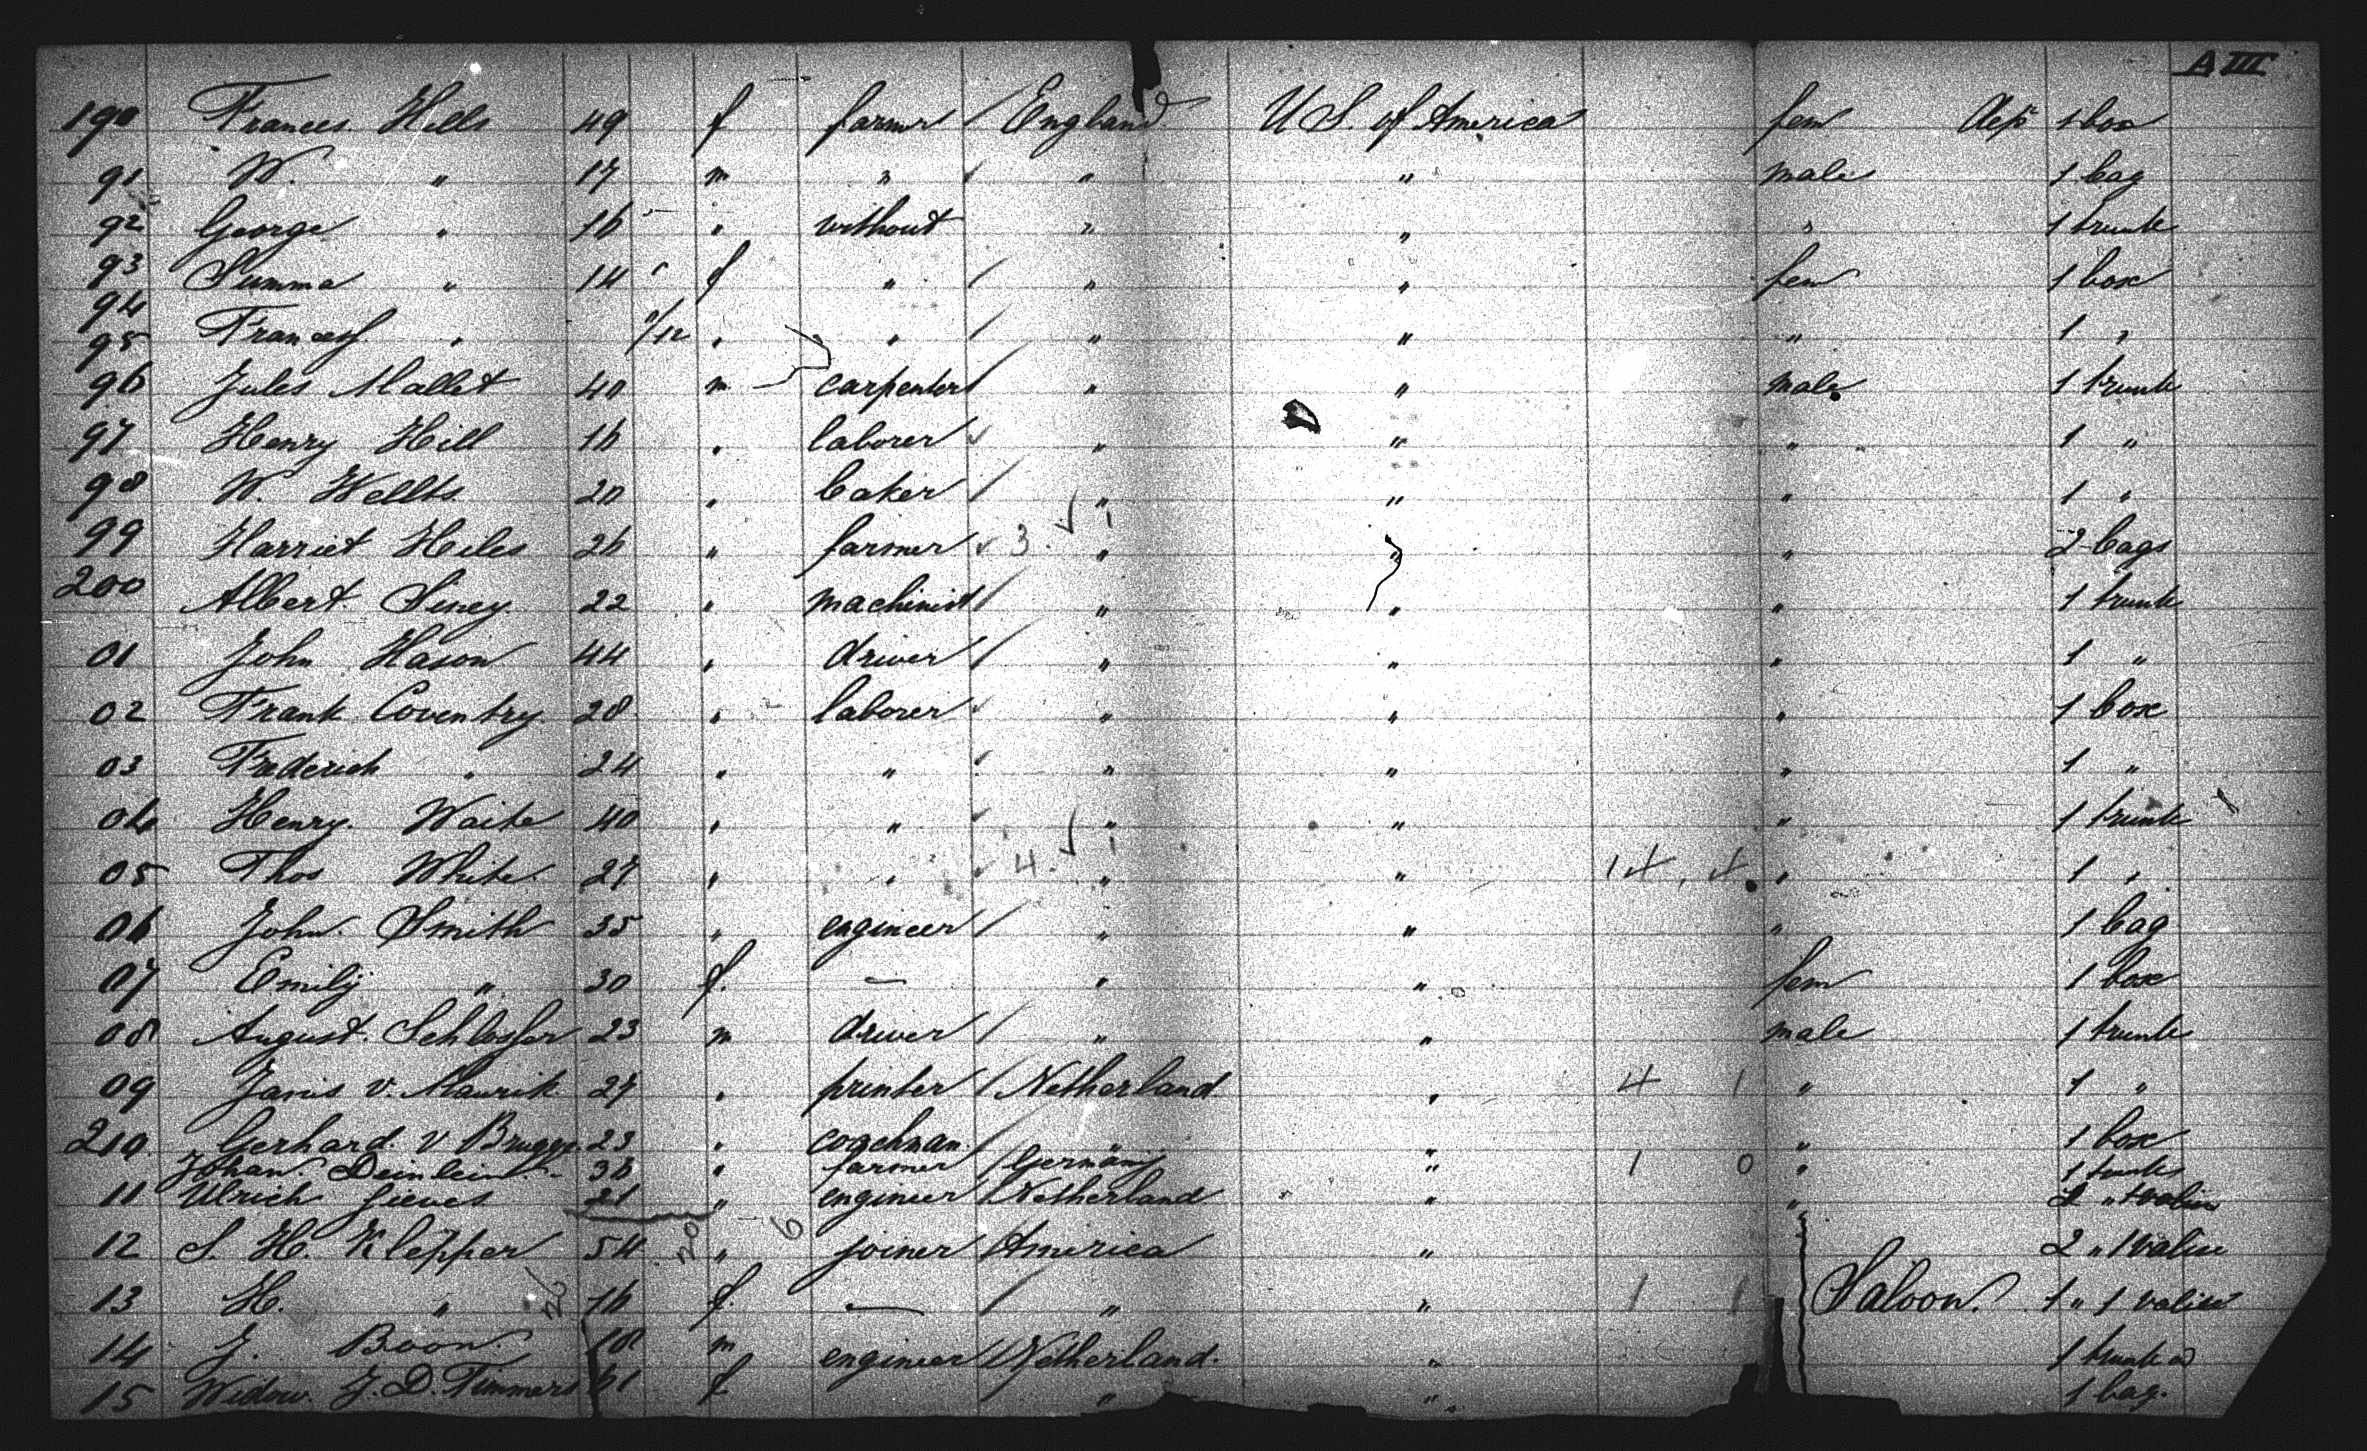 A III
190 Frances Hills 49 f farmer England U S. of America fem 1 box
91 W. " 17 m " " " male 1 bag
92 George " 16 " without " " " 1 trunk
93 " 14 f " " " fem 1 box
94
95 Frances " 11/12 " " " " " 1 "
96 Jules Mallet 40 m carpenter " " male 1 trunk
97 Henry Hill 16 " laborer " " " 1 "
98 W. 20 " baker " " " 1 "
99 Harriet Hiles 26 " farmer 3 " " " 2 bags
200 Albert 22 " machinist " " " 1 trunk
01 John Hason 44 " driver " " " 1 "
02 Frank Coventry 28 " laborer " " " 1 box
03 Frederich " 24 " " " " " 1 "
04 Henry Waite 40 " " " " " 1 trunk
05 Thos White 27 " " 4 " " 14 4 " 1 "
06 John Smith 35 " engineer " " " 1 bag
07 Emily " 30 f. — " " fem 1 box
08 August Schlosser 23 m driver " " male 1 trunk
09 v. Maurik 27 " printer Netherland " 4 1 " 1 "
210 Gerhard v Brugge 23 " coachman " " " 1 box
Johan Deinlein 36 " farmer Germany " 1 0 " 1 trunk
11 Ulrich 21 " engineer Netherland " "
12 S. H. Klepper 54 20 " 6 joiner America " 2 " 1 valise
13 H. " 26 16 f. — " " 1 1 Saloon. 1 " 1 valise
14 J. Boon. 18 m engineer Netherland. " 1 trunk
15 Widow. J. D. Timmers 61 f " " 1 bag.